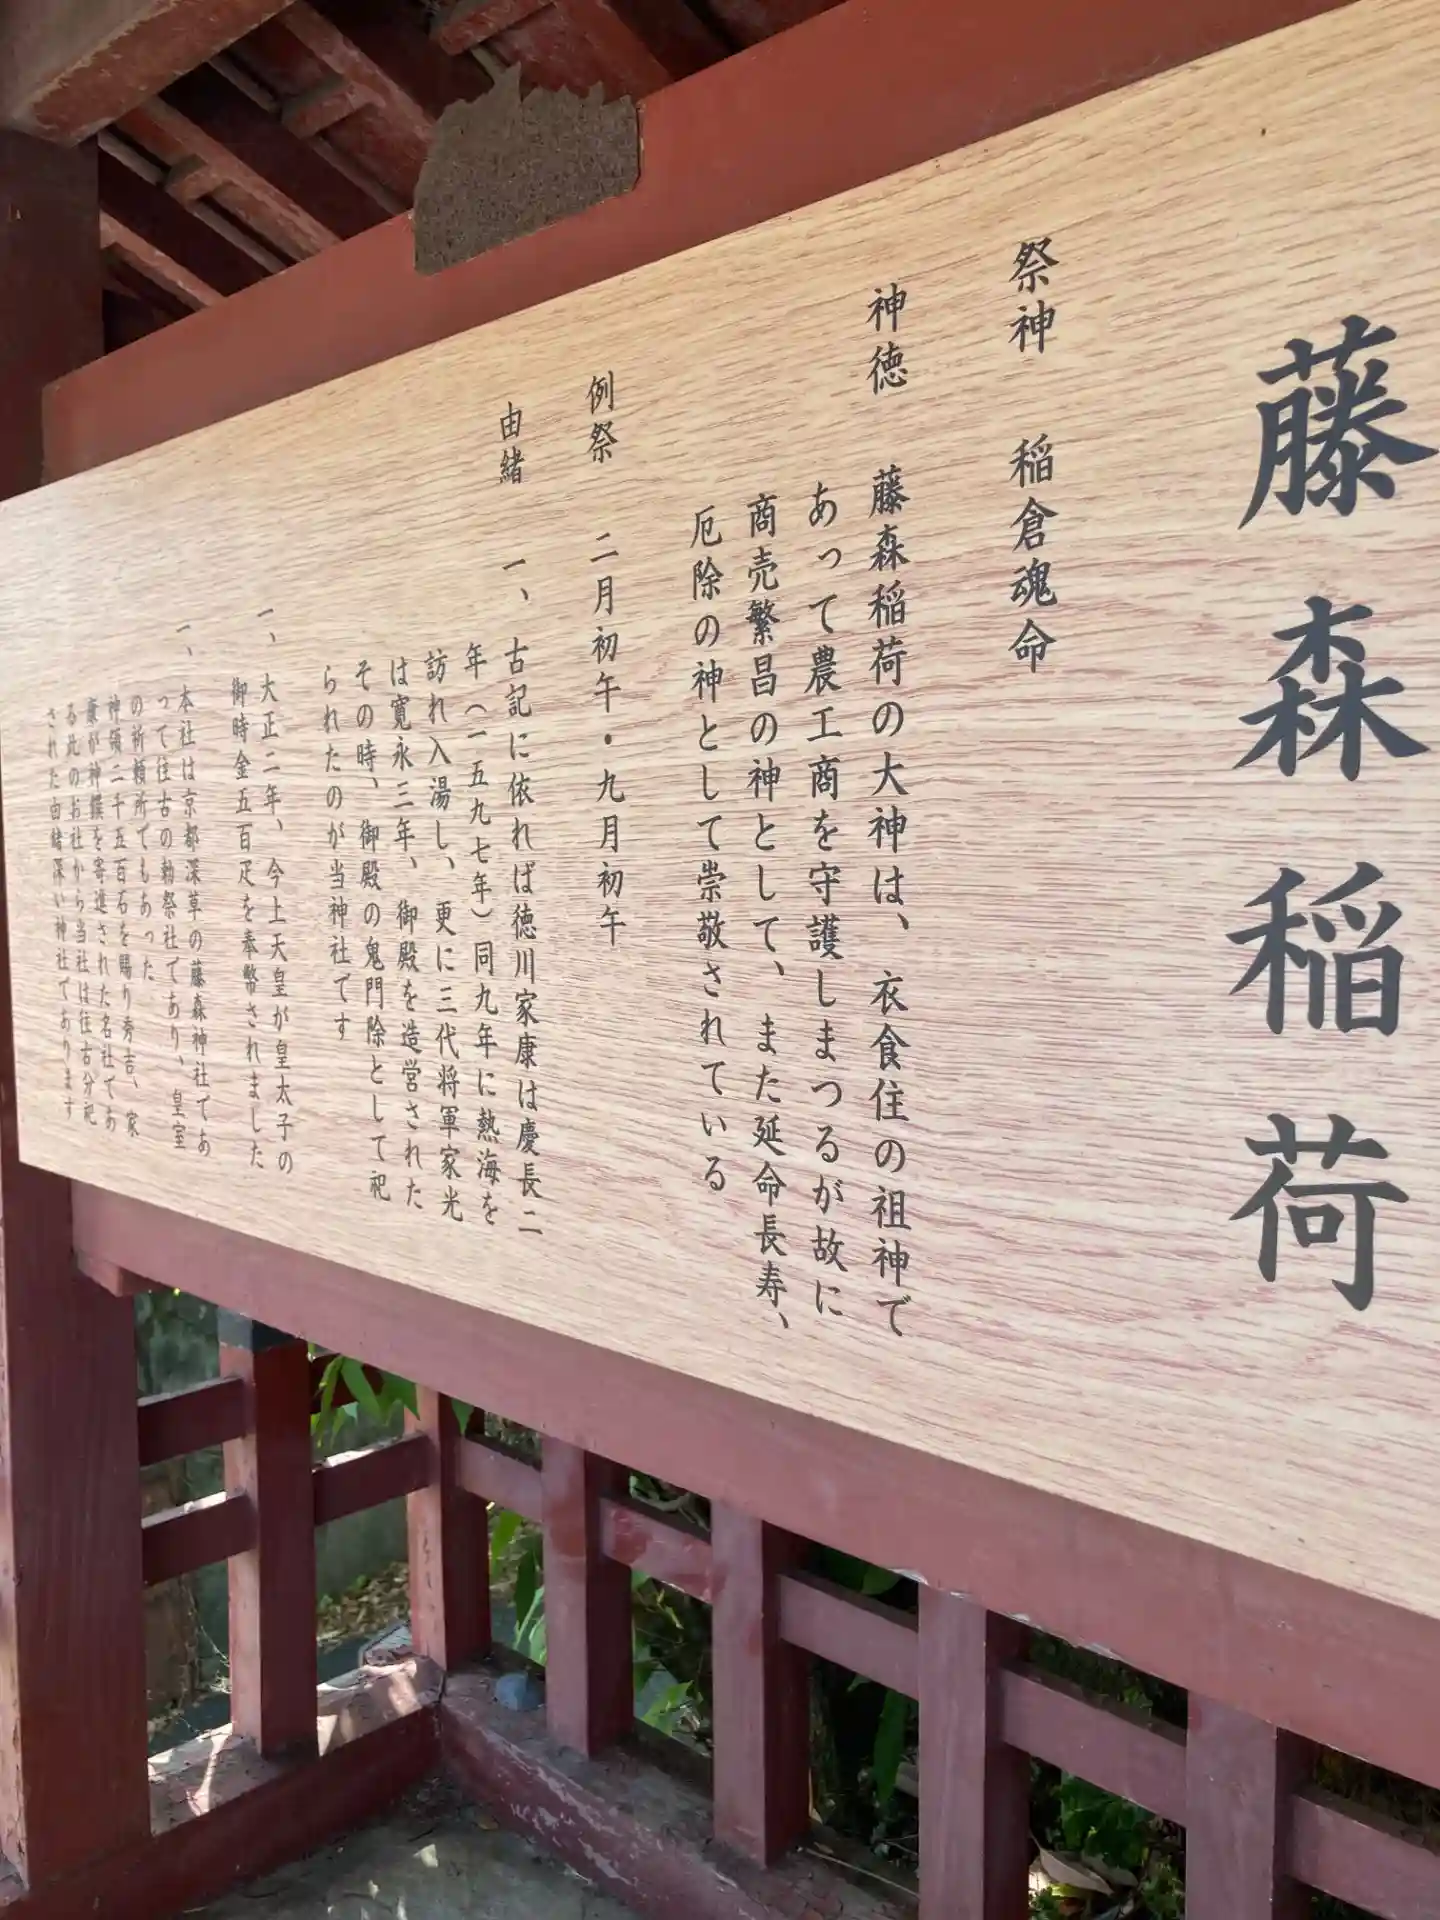 藤森稲荷
祭神 稲倉魂命
神徳 藤森稲荷の大神は、衣食住の祖神で
あって農工商を守護しまつるが故に
商売繁昌の神として、また延命長寿、
厄除の神として崇敬されている
例祭 二月初午・九月初午
由緒 一、古記に依れば徳川家康は慶長二
年(一五九七年)同九年に熱海を
訪れ入湯し、更に三代将軍家光
は寛永三年、御殿を造営された
その時、御殿の鬼門除として祀
られたのが当神社です
一、大正二年、今上天皇が皇太子の
御時金五百疋を奉幣されました
一、本社は京都深草の藤森神社であ
って往古の勅祭社であり、皇室
の祈願所でもあった
神領二千五百石を賜り秀吉、家
康が神饌を寄進された名社であ
る此のお社から当社は往古分祀
された由緒深い神社であります